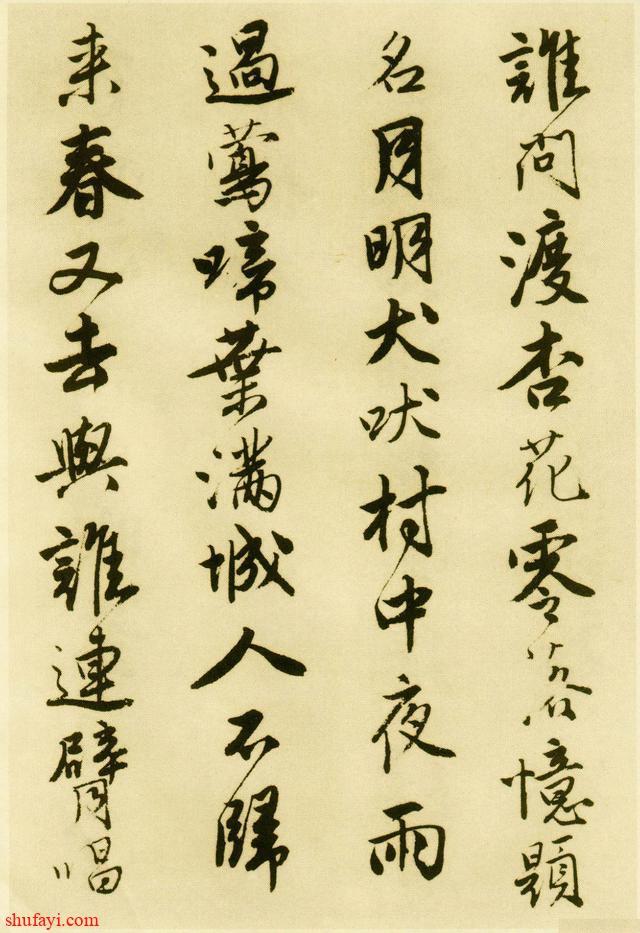 誰問渡杏花零落憶題
名月明犬吠村中夜雨
過鶯啼葉滿城人不歸
来春又去與誰連臂唱
shufayi.com